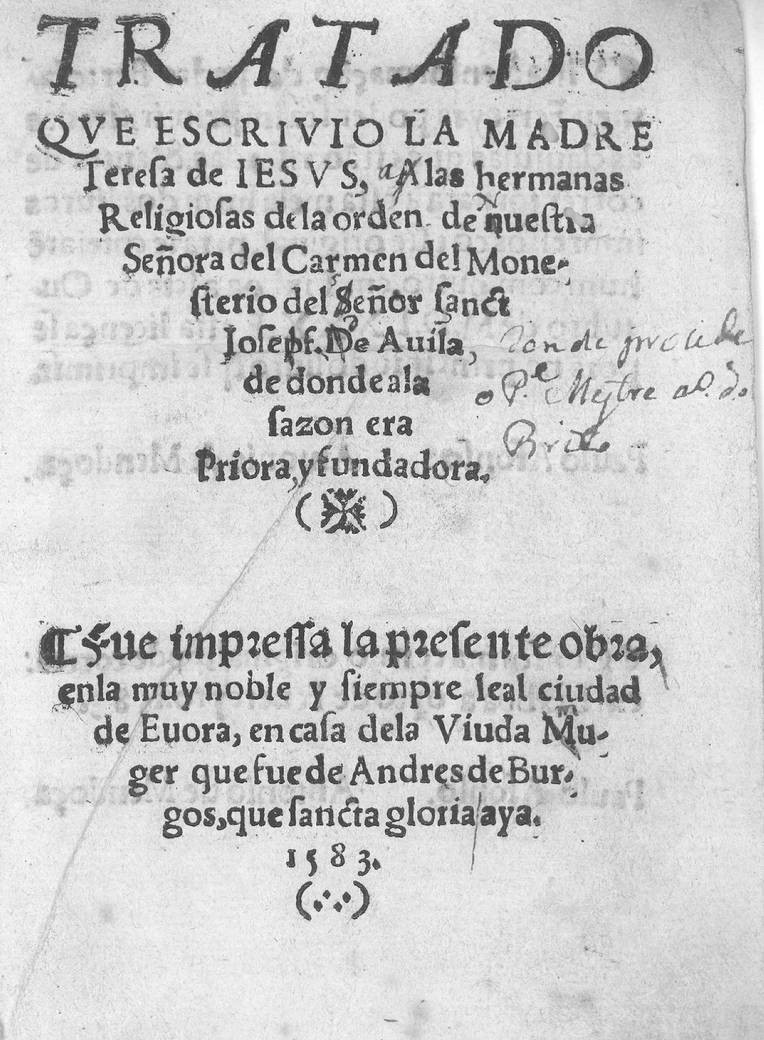 TRATADO
QVE ESCRIVIO LA MADRE
Tereſa de IESVS, a las hermanas
Religioſas dela orden de nueſtra
Señora del Carmen del Mone-
ſterio del Señor ſanct
Ioſeph. De Auila,
de donde ala
ſazon era
Priora, y fundadora.
Fue impreſſa la preſente obra,
enla muy noble y ſiempre leal ciudad
de Euora, en caſa dela Viuda Mu-
ger que fue de Andres de Bur-
gos, que ſancta gloria aya.
1583.